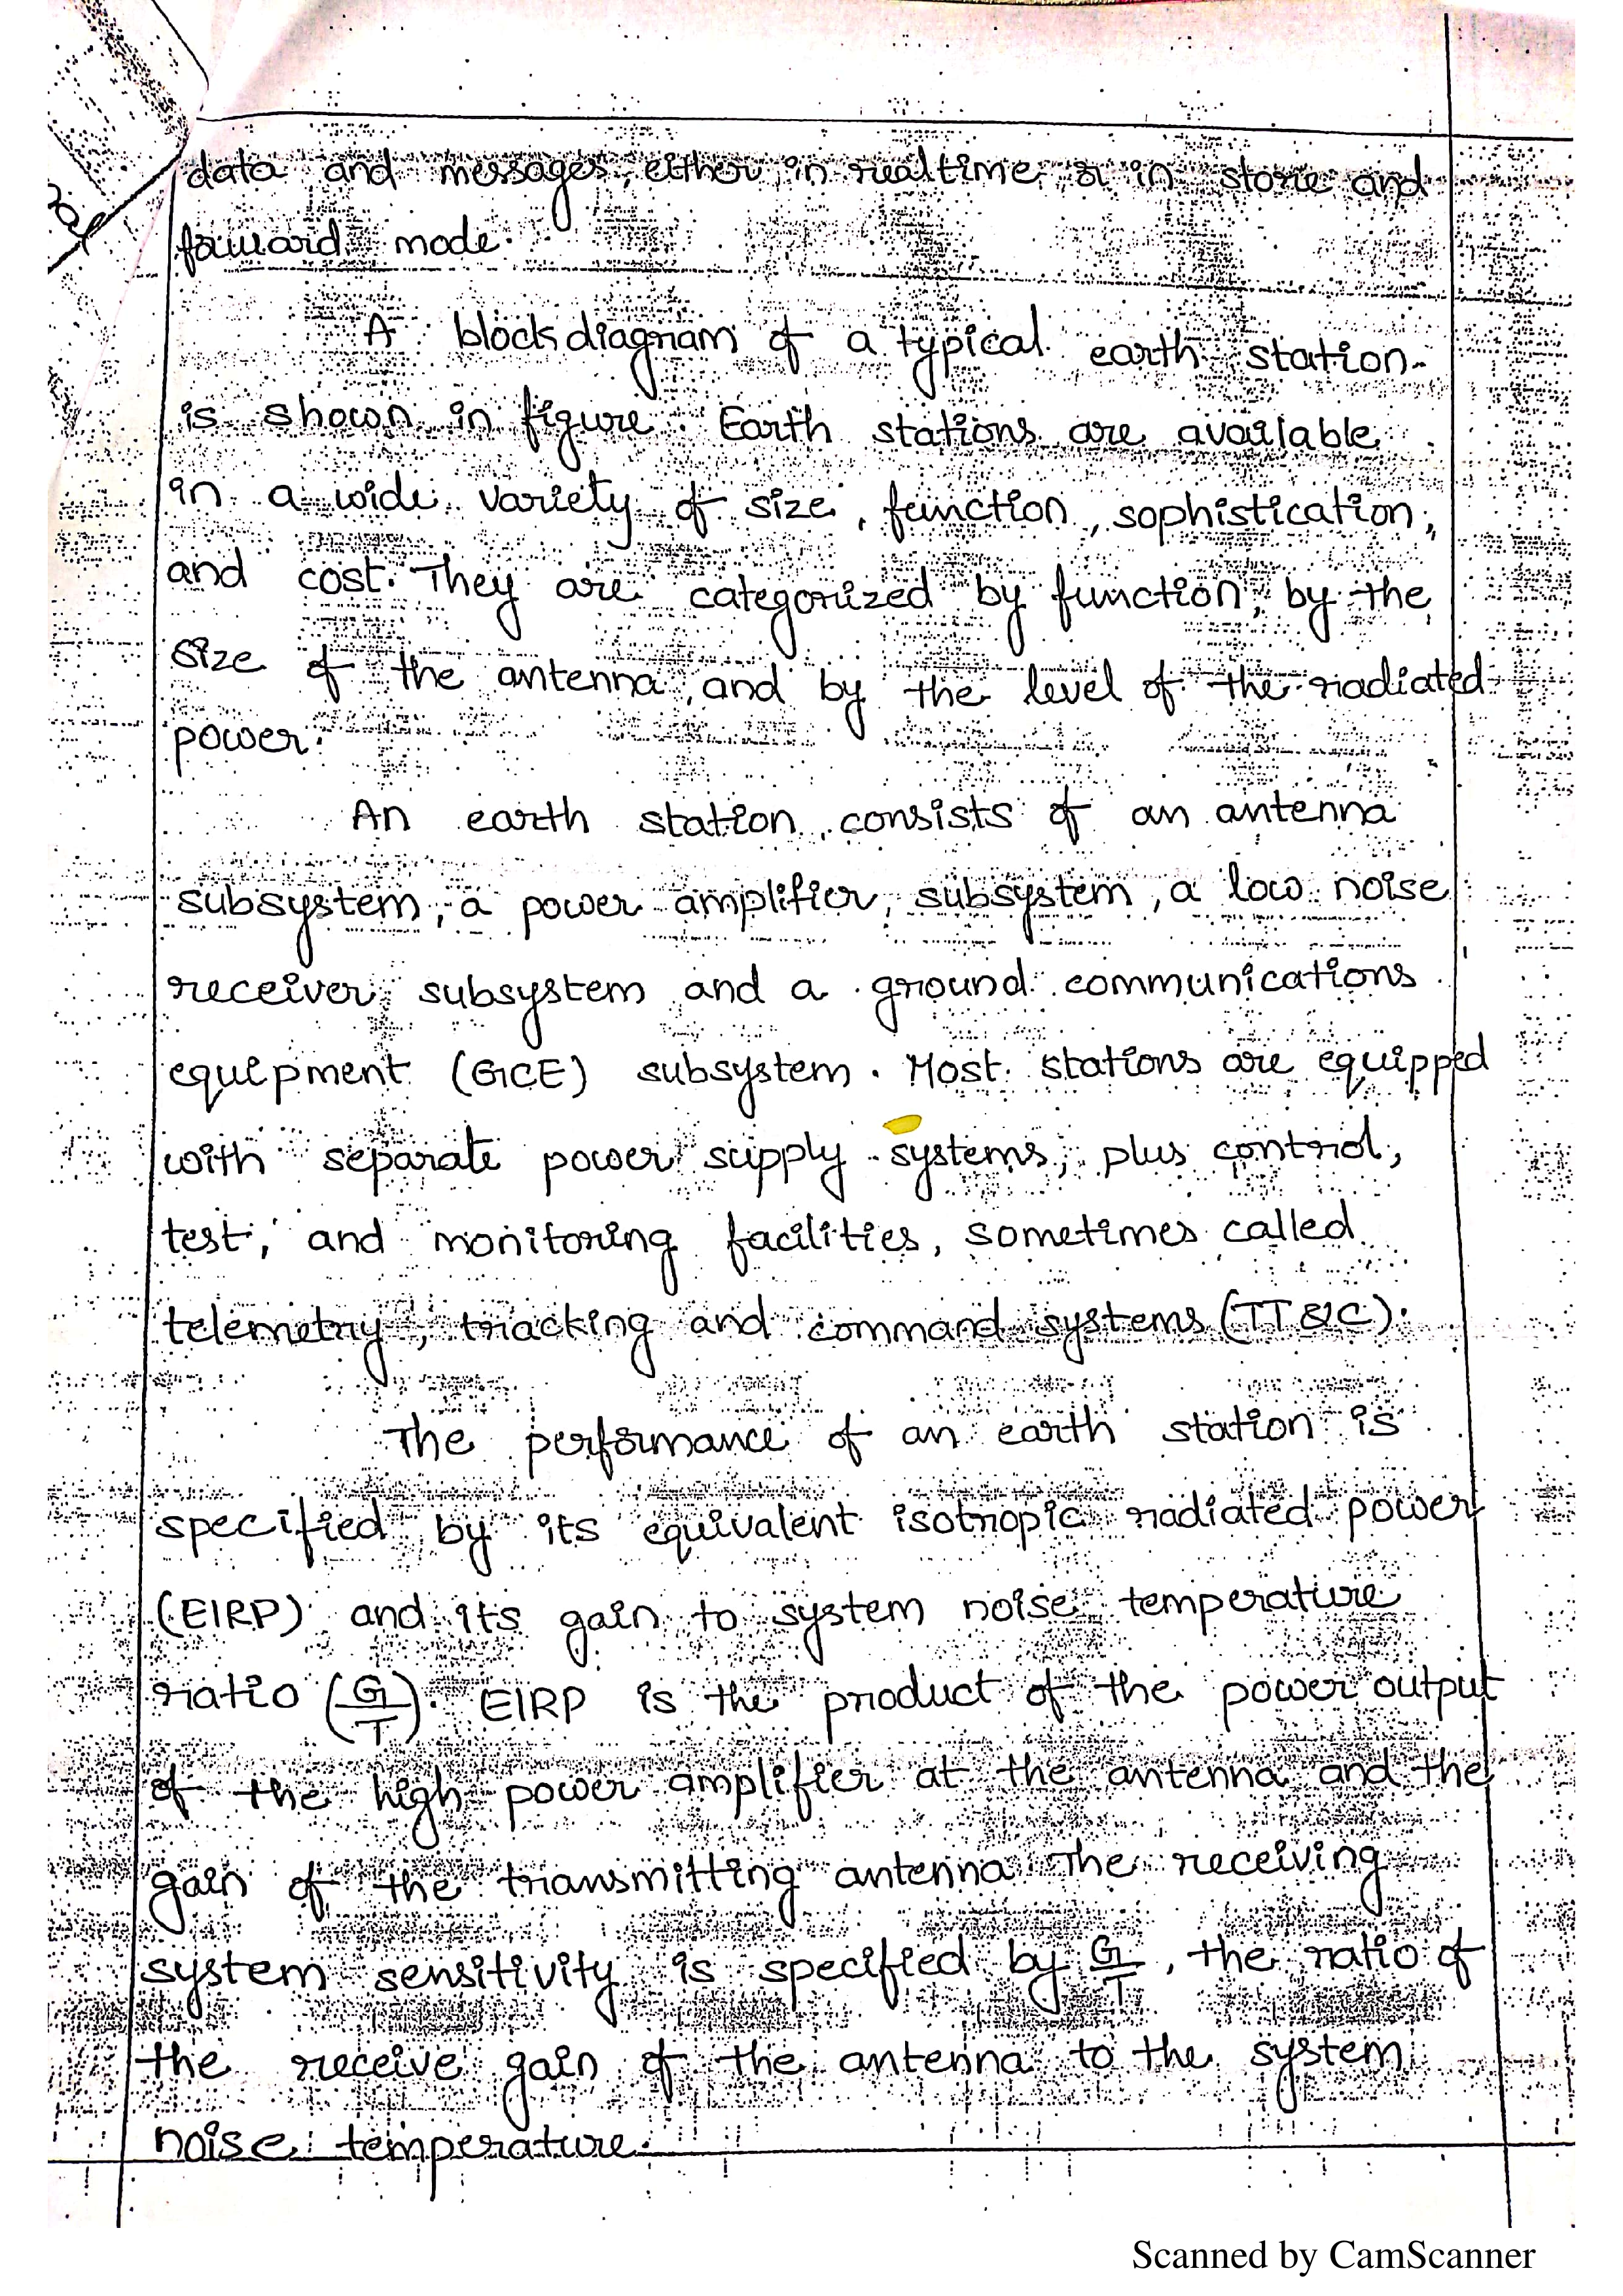 data and messages, either in realtime or in store and
forward mode.
A block diagram of a typical earth station
is shown in figure. Earth stations are available
in a wide variety of size, function, sophistication,
and cost. They are categorized by function, by the
size of the antenna, and by the level of the radiated
power.
An earth station consists of an antenna
subsystem, a power amplifier subsystem, a low noise
receiver subsystem and a ground communications
equipment (GCE) subsystem. Most stations are equipped
with separate power supply systems, plus control,
test, and monitoring facilities, sometimes called
telemetry, tracking and command systems (TT&C).
The performance of an earth station is
specified by its equivalent isotropic radiated power
(EIRP) and its gain to system noise temperature
ratio (G/T). EIRP is the product of the power output
of the high power amplifier at the antenna and the
gain of the transmitting antenna. The receiving
system sensitivity is specified by G/T, the ratio of
the receive gain of the antenna to the system
noise temperature.
Scanned by CamScanner